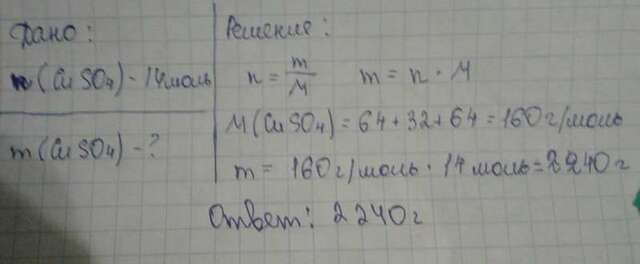 Дано:
n(CuSO4) - 14 моль
m(CuSO4) - ?
Решение:
n = m/M m = n · M
M(CuSO4) = 64 + 32 + 64 = 160 г/моль
m = 160 г/моль · 14 моль = 2240 г
Ответ: 2240 г